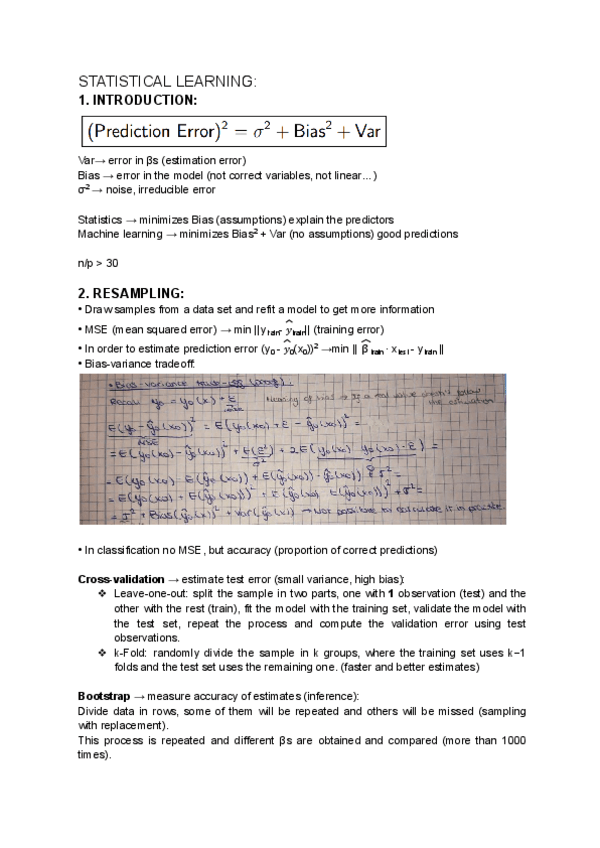 STATISTICAL LEARNING:
1. INTRODUCTION:
(Prediction Error)² = σ² + Bias² + Var
Var→ error in βs (estimation error)
Bias → error in the model (not correct variables, not linear…)
σ² → noise, irreducible error
Statistics → minimizes Bias (assumptions) explain the predictors
Machine learning → minimizes Bias² + Var (no assumptions) good predictions
n/p > 30
2. RESAMPLING:
• Draw samples from a data set and refit a model to get more information
• MSE (mean squared error) → min ||y train- ŷ train|| (training error)
• In order to estimate prediction error (y₀ - ŷ₀(x₀))² →min || β̂ train · x test - y train ||
• Bias-variance tradeoff:
• Bias-variance trade-off (proof).
Recall y₀ = y₀(x) + ε
noise
E(y₀ - ŷ₀(x₀))² = E(y₀(x₀) + ε - ŷ₀(x₀))² =
MSE
• In classification no MSE, but accuracy (proportion of correct predictions)
Cross-validation → estimate test error (small variance, high bias):
❖ Leave-one-out: split the sample in two parts, one with 1 observation (test) and the
other with the rest (train), fit the model with the training set, validate the model with
the test set, repeat the process and compute the validation error using test
observations.
❖ k-Fold: randomly divide the sample in k groups, where the training set uses k−1
folds and the test set uses the remaining one. (faster and better estimates)
Bootstrap → measure accuracy of estimates (inference):
Divide data in rows, some of them will be repeated and others will be missed (sampling
with replacement).
This process is repeated and different βs are obtained and compared (more than 1000
times).